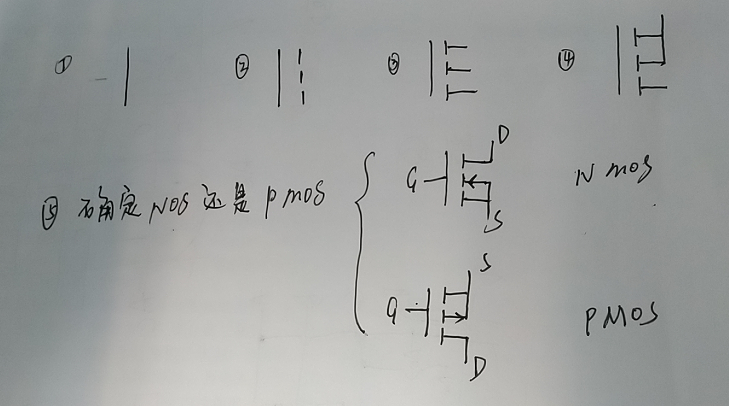 ① ② ③ ④
D
G N MOS
S
⑤ 确定 NOS 还是 PMOS
S
G PMOS
D